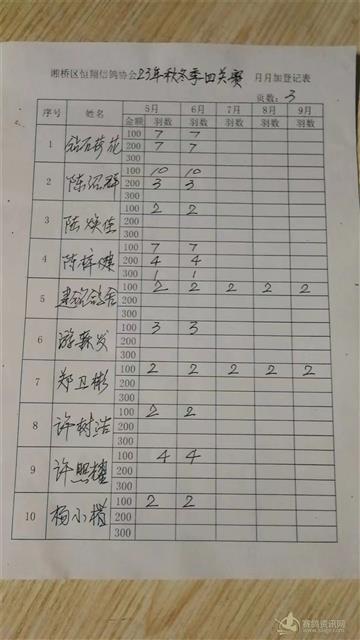 湘桥区恒翔信鸽协会23年秋冬季四关赛 月月加登记表
页数: 3
序号 姓名 5月 6月 7月 8月 9月
金额 羽数 羽数 羽数 羽数 羽数
1 100 7 7
200 7 7
300
2 陈沼群 100 10 10
200 3 3
300
3 陆焕佳 100 2 2
200
300
4 陈梓 100 7 7
200 4 4
300 1 1
5 鸽舍 100 2 2 2 2 2
200
300
6 游泰发 100 3 3
200
300
7 郑卫彬 100 2 2 2 2 2
200
300
8 许树浩 100 2 2
200
300
9 许照 100 4 4
200
300
10 杨小 100 2 2
200
300
赛鸽资讯网